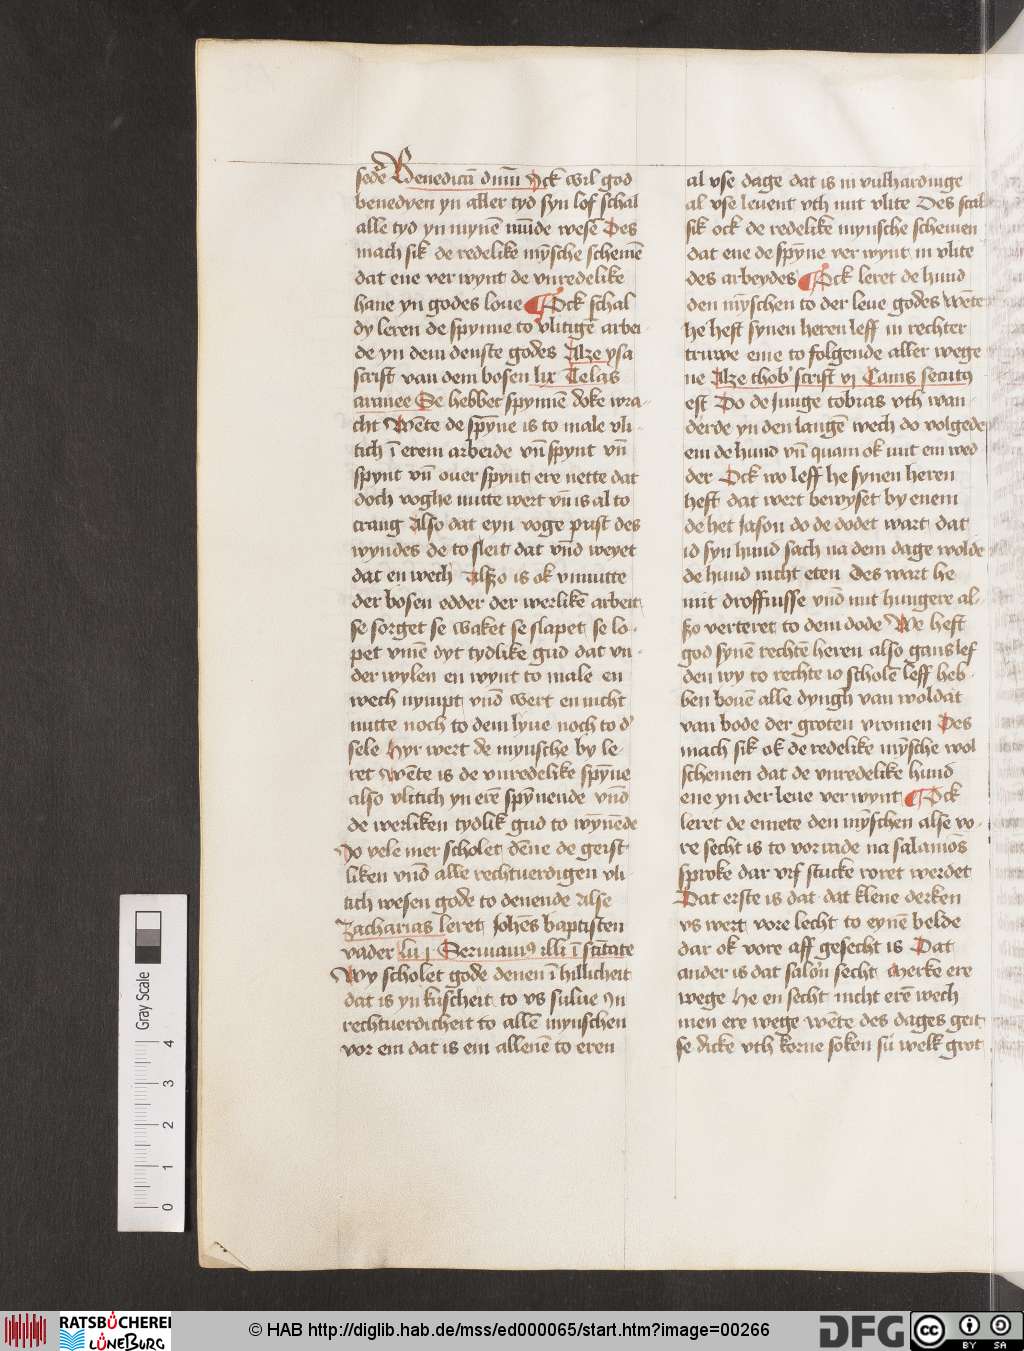 sede Benedicā dnm̄ Ick wil god
benedyen yn aller tyd syn lof schal
alle tyd yn mynē mūde wesē Des
mach sik de redelike mȳsche schemē
dat ene ver wynt de vnredelike
hane yn godes loue Ock schal
dy leren de spynne to vlitigē arbei
de yn dem denste godes Alze ysa
scrift van dem bosen lix Telas
aranee Se hebbet spynnē doke wra
cht Wēte de spȳne is to male vli
tich ī erem arbeide vn̄ spynt vn̄
spynt vn̄ ouer spynt ere nette dat
doch voghe nutte wert vn̄ is al to
crang Also dat eyn voge pust des
wyndes de to sleit dat vn̄d weyet
dat en wech Alszo is ok vnnutte
der bosen edder der werlikē arbeit
se sorget se waket se slapet se lo
pet vmē dyt tydlike gud dat vn
der wylen en wynt to male en
wech nympt vn̄d wert en nicht
nutte noch to dem lyue noch to d'
sele Hyr wert de mynsche by le
ret Wēte is de vnredelike spȳne
also vlitich yn erē spȳnende vn̄d
de werliken tydlik gud to wȳnēde
Jo vele mer scholet dēne de geist
liken vn̄d alle rechtuerdigen vli
tich wesen gode to denende Alse
Zacharias leret Johēs baptisten
vader Lu j Seruiamꝰ illi ī scītate
Wy scholet gode denen ī hillicheit
dat is yn kuscheit to vs sulue yn
rechtuerdicheit to allē mynschen
vor em dat is em allenē to eren
al vse dage dat is in vulhardinge
al vse leuent vth mit vlite Des scal
sik ock de redelike mynsche schemen
dat ene de spȳne ver wynt in vlite
des arbeydes Ock leret de hund
den mȳschen to der leue godes wēte
he heft synen heren leff in rechter
truwe eme to folgende aller wege
ne Alze thob' scrift vj Canis secutꝰ
est Do de junge tobias vth wan
derde yn den langē wech do volgede
em de hund vn̄ quam ok mit em wed
der Ock wo leff he synen heren
heft dat wert bewyset by enem
de het Jason do de dodet wart dat
id syn hund sach na dem dage wolde
de hund nicht eten Des wart he
mit droffnisse vn̄d mit hungere al
szo verteret to dem dode We heft
god synē rechtē heren also gans lef
den wy to rechte io scholē leff heb
ben bouē alle dyngh van woldat
van bode der groten vromen Des
mach sik ok de redelike mȳsche wol
schemen dat de vnredelike hund
ene yn der leue ver wynt Ock
leret de emete den mȳschen alse vo
re secht is to vorrade na salamōs
sproke dar vif stucke roret werdet
Dat erste is dat dat klene derken
vs wert vore lecht to eynē belde
dar ok vore aff gesecht is Dat
ander is dat salōn secht Merke ere
wege He en secht nicht erē wech
men ere wege wēte des dages geit
se dicke vth korne soken su welk grot
Gray Scale
0 1 2 3 4
RATSBÜCHEREI
LÜNEBURG
© HAB http://diglib.hab.de/mss/ed000065/start.htm?image=00266
DFG
cc
BY SA